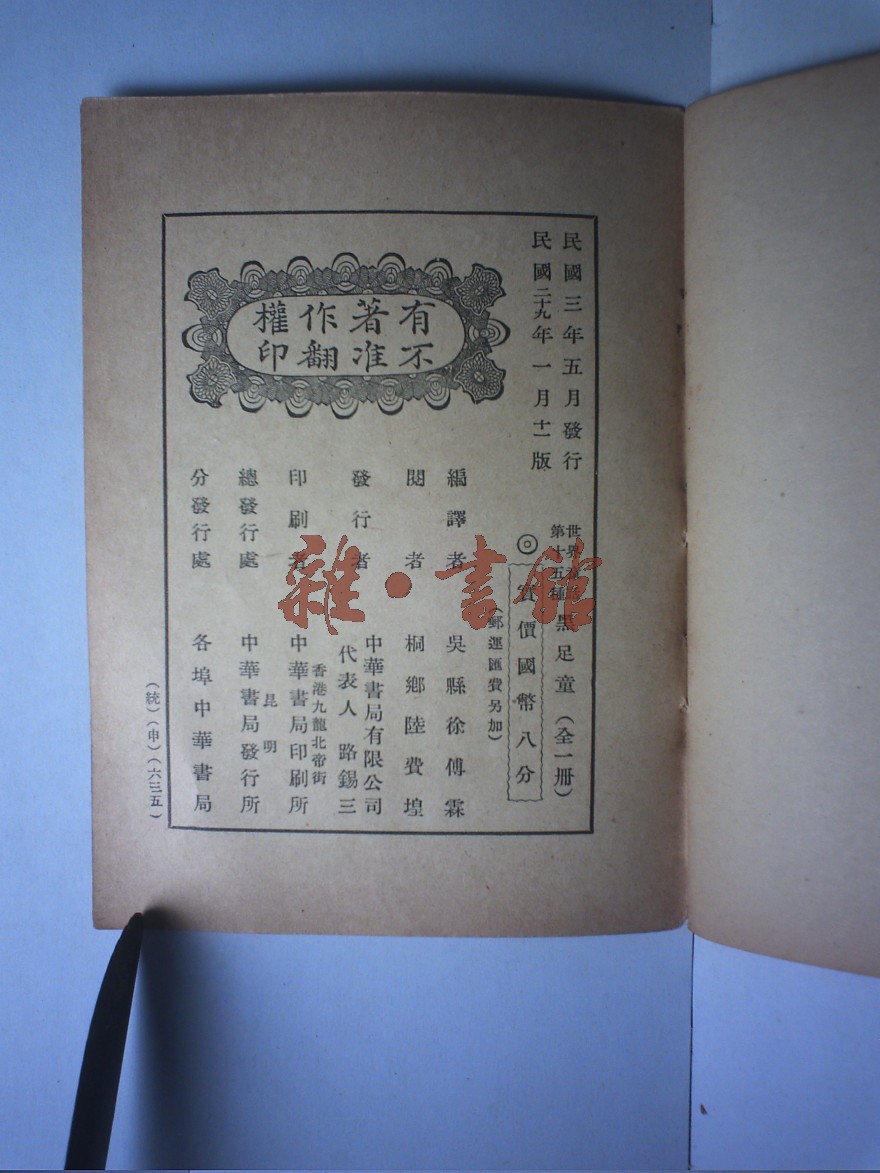 民國三年五月發行
民國二十九年一月十一版
世界童話
第十五種
黑足童（全一冊）
◎實價國幣八分
（郵運匯費另加）
有著作權
不准翻印
編譯者 吳縣徐傅霖
閱者 桐鄉陸費堭
發行者 中華書局有限公司
代表人 路錫三
印刷者 香港九龍北帝街
中華書局印刷所
總發行處 昆明
中華書局發行所
分發行處 各埠中華書局
（統）（申）（六三五）
雜·書館